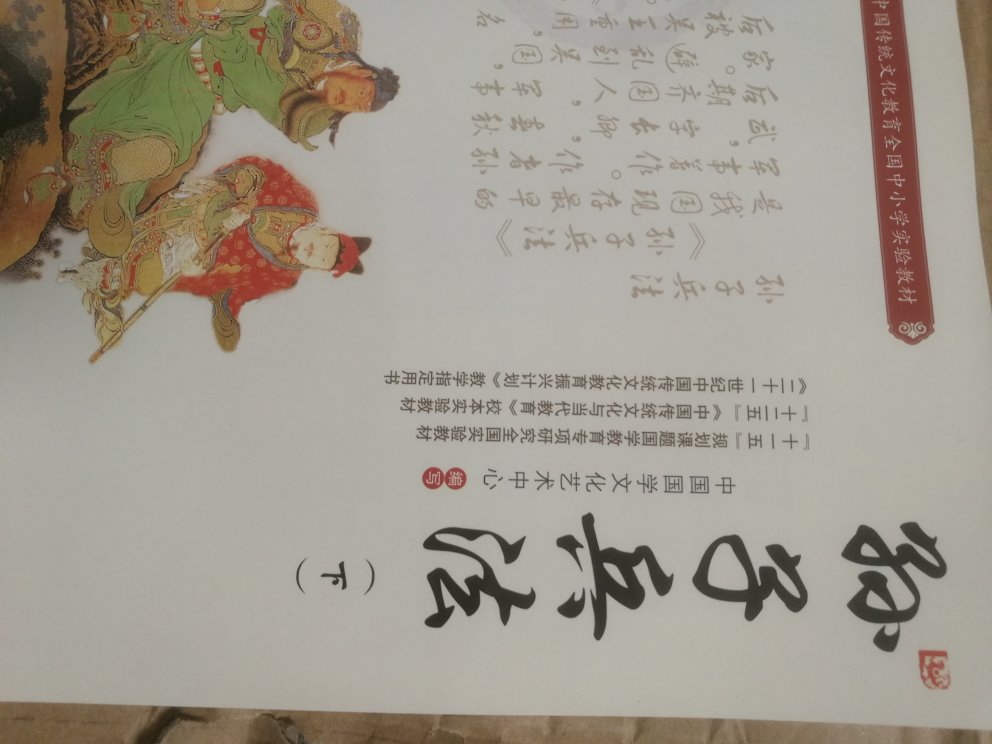 中国传统文化教育全国中小学实验教材
孙子兵法
（下）
中国国学文化艺术中心 编写
『十一五』规划课题国学教育专项研究全国实验教材
『十二五』《中国传统文化与当代教育》校本实验教材
《二十一世纪中国传统文化教育振兴计划》教学指定用书
孙子兵法
《孙子兵法》
是我国现存最早的
军事著作。作者孙
武，字长卿，春秋
后期齐国人，军事
家。避乱到吴国，
后被吴主重用，名